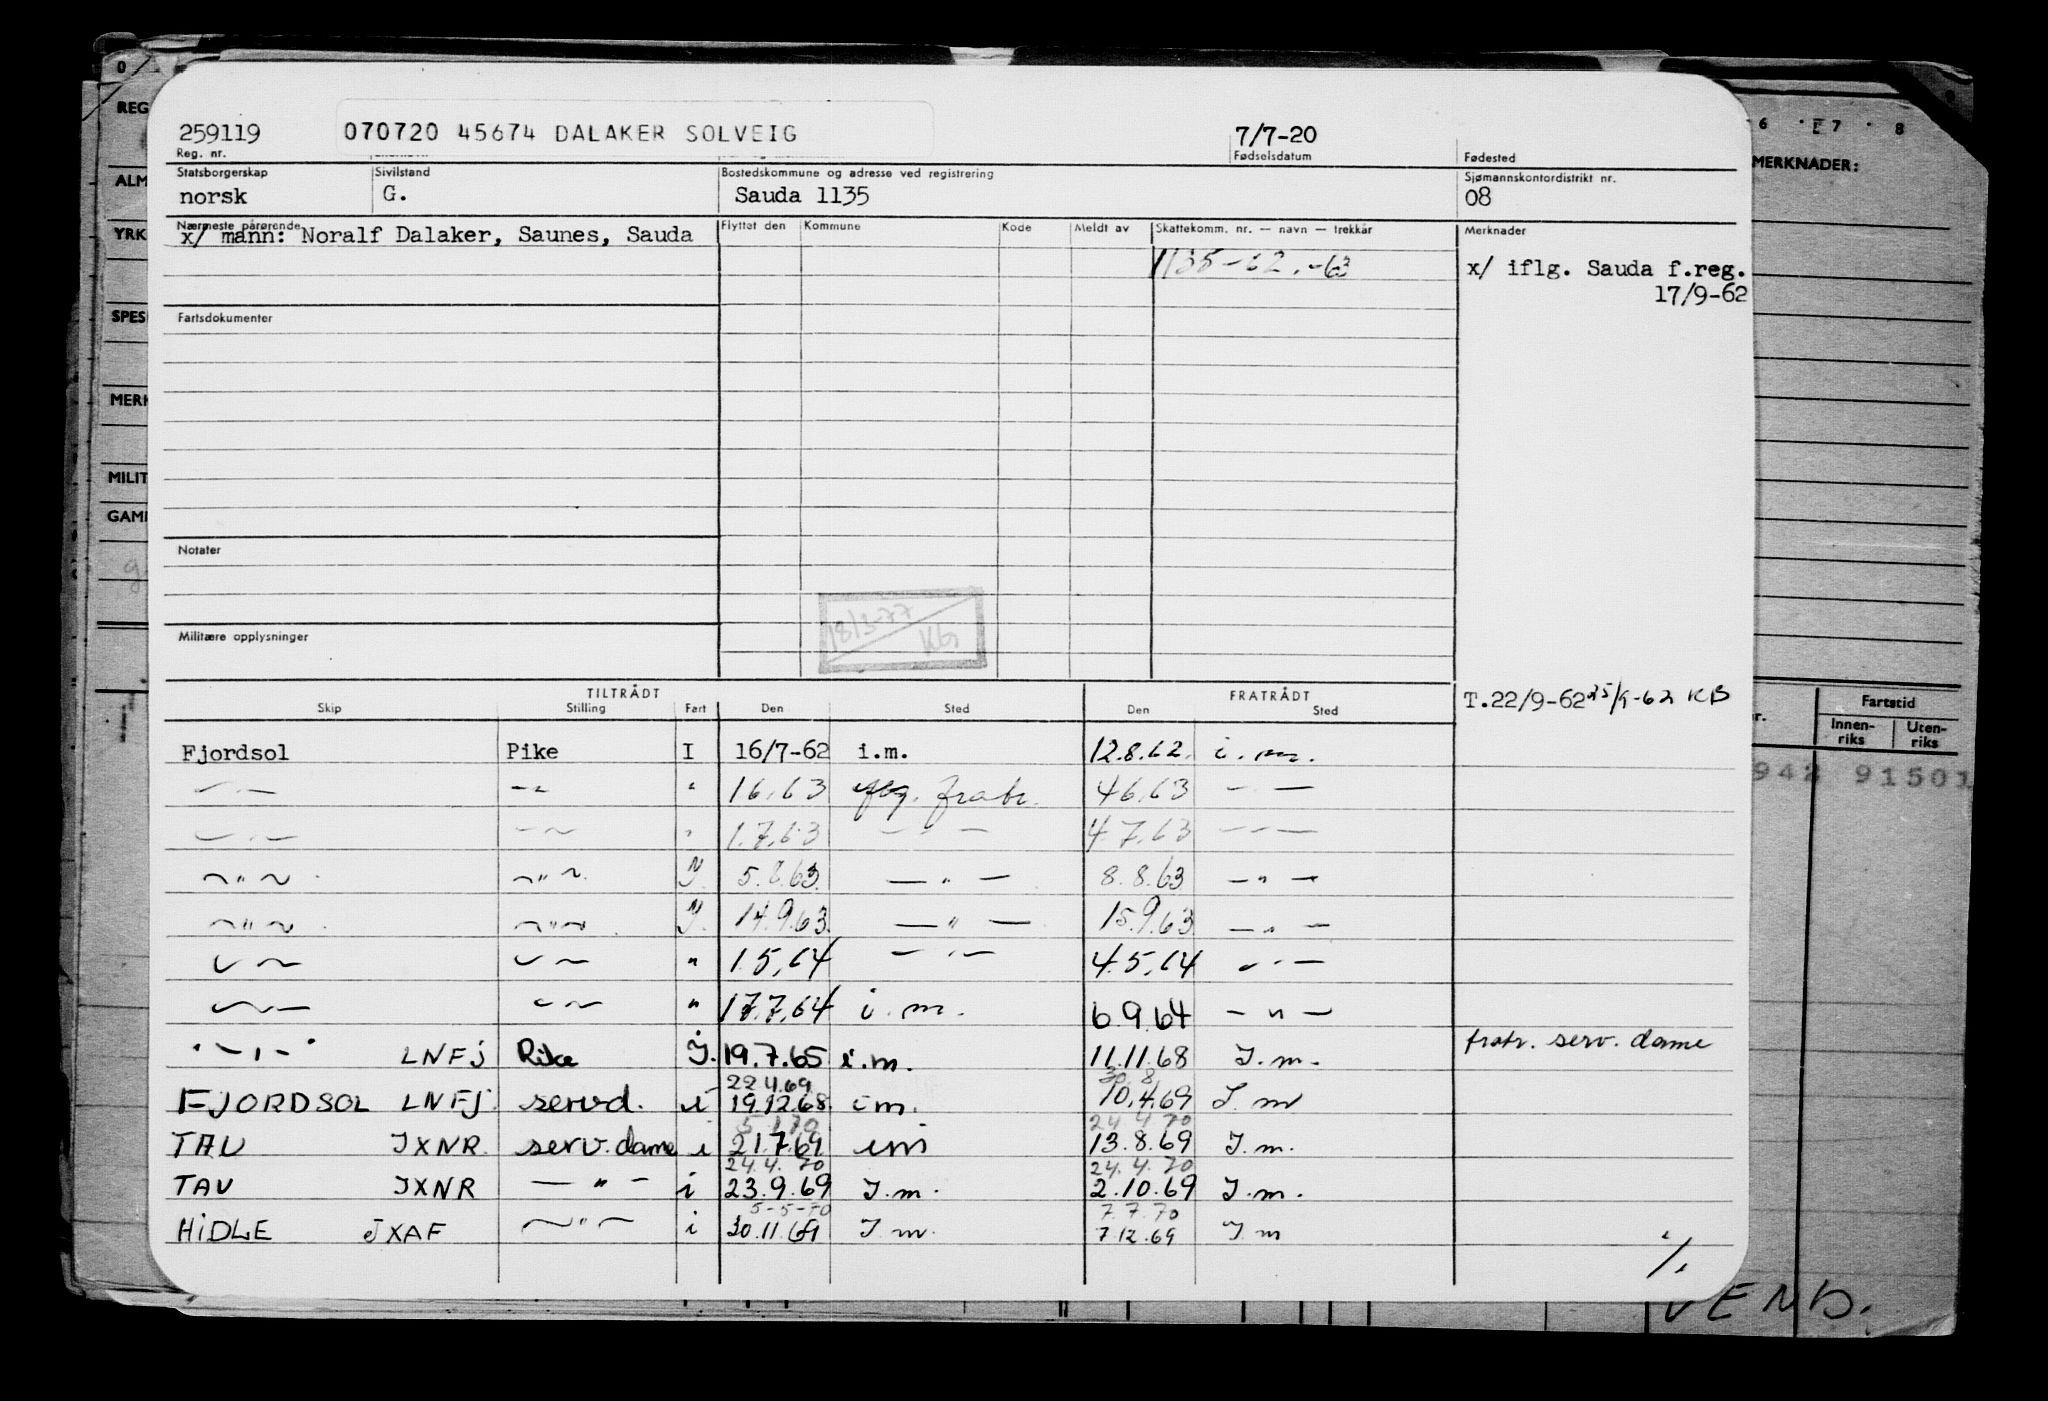 259119 070720 45674 DALAKER SOLVEIG 7/7-20
Reg. nr. Fødselsdatum Fødested
Statsborgerskap Sivilstand Bostedskommune og adresse ved registrering Sjømannskontordistrikt nr.
norsk G. Sauda 1135 08
Nærmeste pårørende Flyttet den Kommune Kode Meldt av Skattekomm. nr. — navn — trekkår Merknader
x/ mann: Noralf Dalaker, Saunes, Sauda
1135-62.-63 x/ iflg. Sauda f.reg.
17/9-62
Fartsdokumenter
Notater
18/3-77
KG
Militære opplysninger
TILTRÅDT FRATRÅDT
T.22/9-62 25/9-62 KB
Skip Stilling Fart Den Sted Den Sted
Fjordsol Pike I 16/7-62 i.m. 12.8.62. i.m.
— " — — " — " 1.6.63 iflg. fratr. 4.6.63 — " —
— " — — " — " 1.7.63 — " — 4.7.63 — " —
— " — — " — I 5.8.63 — " — 8.8.63 — " —
— " — — " — I 14.9.63 — " — 15.9.63 — " —
— " — — " — " 1.5.64 — " — 4.5.64 — " —
— " — — " — " 17.7.64 i.m. 6.9.64 — " —
— " — LNFJ Pike I. 19.7.65 i.m. 11.11.68 I.m. fratr. serv. dame
22.4.69 30.8
FJORDSOL LNFJ servd. i 19.12.68 im. 10.4.69 I.m
5.1.70 24.4.70
TAU JXNR serv.dame i 21.7.69 im 13.8.69 I.m.
24.4.70 24.4.70
TAU JXNR — " — i 23.9.69 I.m. 2.10.69 I.m.
5-5-70 7.7.70
HIDLE JXAF — " — i 30.11.69 I.m. 7.12.69 I m
./.
VEND.
REG
ALM
YRK
SPES
MERK
MILIT
GAML
6 7 8
MERKNADER:
Fartstid
Innen-
riks
Uten-
riks
942 91501